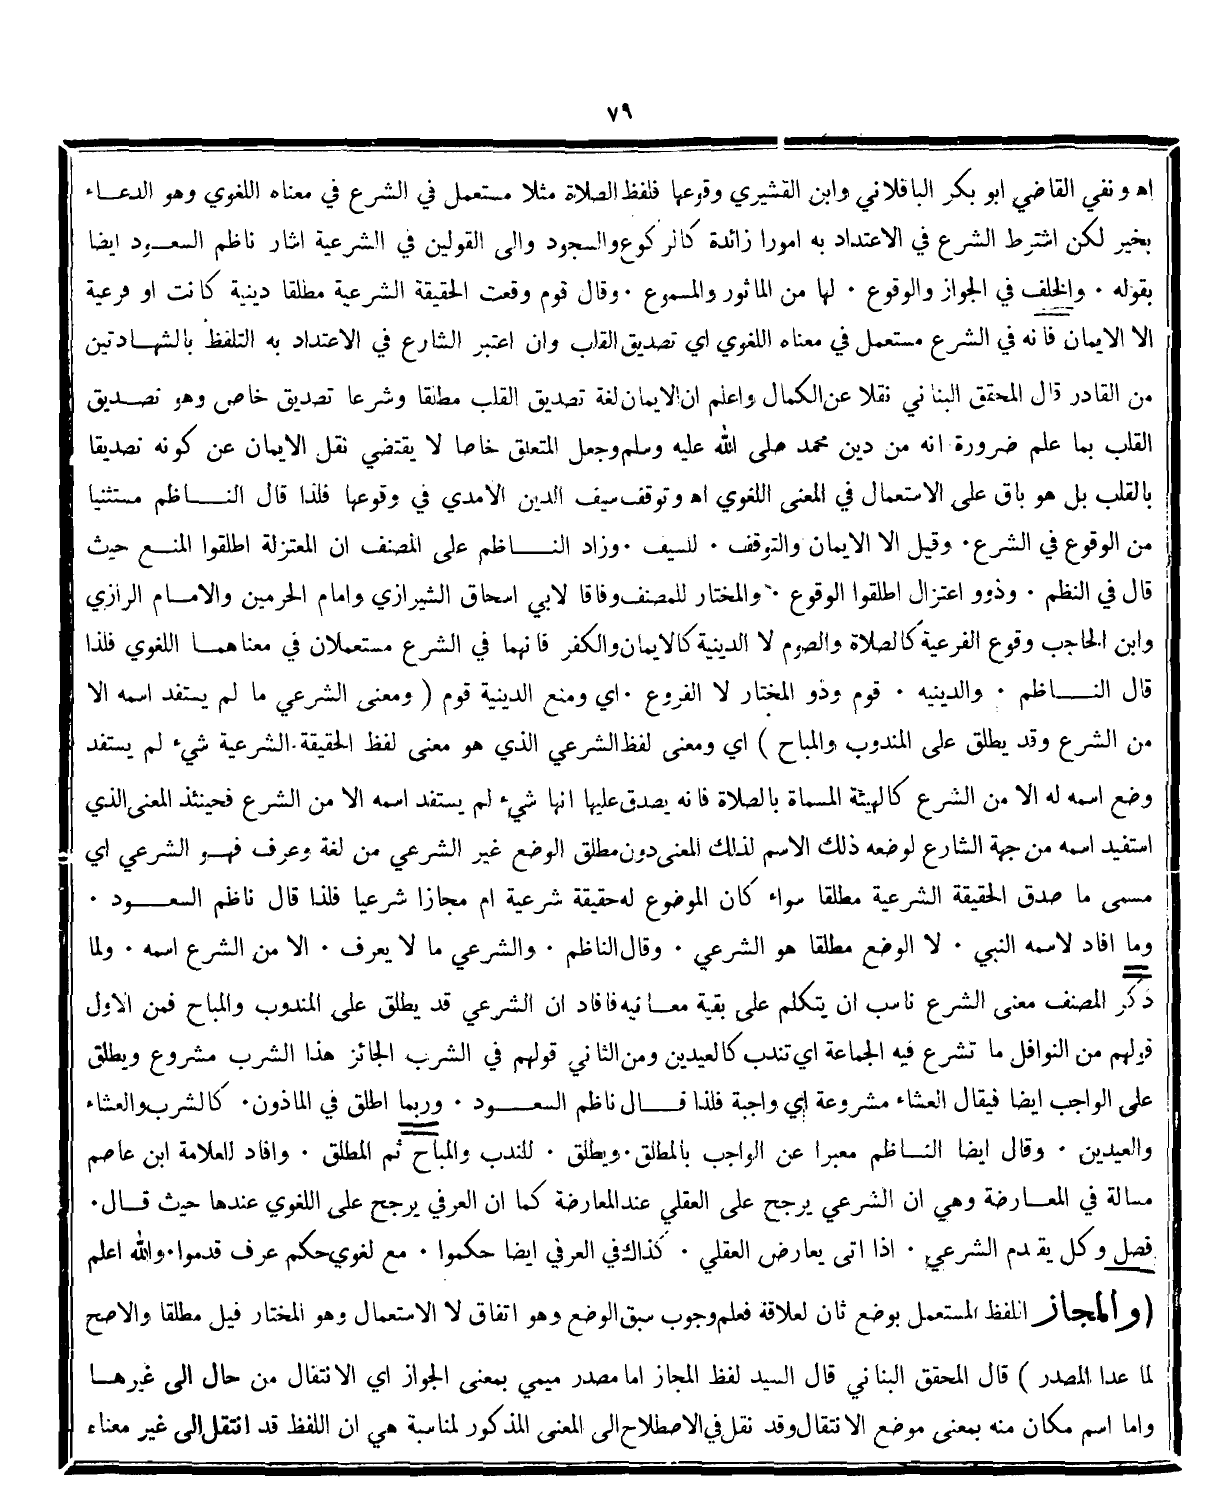 ٧٩
اه ونفي القاضي ابو بكر الباقلاني وابن القشيري وقوعها فلفظ الصلاة مثلا مستعمل في الشرع في معناه اللغوي وهو الدعاء
بخير لكن اشترط الشرع في الاعتداد به امورا زائدة كالركوع والسجود والى القولين في الشرعية اشار ناظم السعود ايضا
بقوله · والخلف في الجواز والوقوع · لها من الماثور والمسموع · وقال قوم وقعت الحقيقة الشرعية مطلقا دينية كانت او فرعية
الا الايمان فانه في الشرع مستعمل في معناه اللغوي اي تصديق القلب وان اعتبر الشارع في الاعتداد به التلفظ بالشهادتين
من القادر قال المحقق البناني نقلا عن الكمال واعلم ان الايمان لغة تصديق القلب مطلقا وشرعا تصديق خاص وهو تصديق
القلب بما علم ضرورة انه من دين محمد صلى الله عليه وسلم وجعل المتعلق خاصا لا يقتضي نقل الايمان عن كونه تصديقا
بالقلب بل هو باق على الاستعمال في المعنى اللغوي اه وتوقف سيف الدين الامدي في وقوعها فلذا قال الناظم مستثنيا
من الوقوع في الشرع · وقيل الا الايمان والتوقف · للسيف · وزاد الناظم على المصنف ان المعتزلة اطلقوا المنع حيث
قال في النظم · وذوو اعتزال اطلقوا الوقوع · والمختار للمصنف وفاقا لابي اسحاق الشيرازي وامام الحرمين والامام الرازي
وابن الحاجب وقوع الفرعية كالصلاة والصوم لا الدينية كالايمان والكفر فانهما في الشرع مستعملان في معناهما اللغوي فلذا
قال الناظم · والدينيه · قوم وذو المختار لا الفروع · اي ومنع الدينية قوم ( ومعنى الشرعي ما لم يستفد اسمه الا
من الشرع وقد يطلق على المندوب والمباح ) اي ومعنى لفظ الشرعي الذي هو معنى لفظ الحقيقة الشرعية شيء لم يستفد
وضع اسمه له الا من الشرع كالهيئة المسماة بالصلاة فانه يصدق عليها انها شيء لم يستفد اسمه الا من الشرع فحينئذ المعنى الذي
استفيد اسمه من جهة الشارع لوضعه ذلك الاسم لذلك المعنى دون مطلق الوضع غير الشرعي من لغة وعرف فهو الشرعي اي
مسمى ما صدق الحقيقة الشرعية مطلقا سواء كان الموضوع له حقيقة شرعية ام مجازا شرعيا فلذا قال ناظم السعود ·
وما افاد لاسمه النبي · لا الوضع مطلقا هو الشرعي · وقال الناظم · والشرعي ما لا يعرف · الا من الشرع اسمه · ولما
ذكر المصنف معنى الشرع ناسب ان يتكلم على بقية معانيه فافاد ان الشرعي قد يطلق على المندوب والمباح فمن الاول
قولهم من النوافل ما تشرع فيه الجماعة اي تندب كالعيدين ومن الثاني قولهم في الشرب الجائز هذا الشرب مشروع ويطلق
على الواجب ايضا فيقال العشاء مشروعة اي واجبة فلذا قال ناظم السعود · وربما اطلق في الماذون · كالشرب والعشاء
والعيدين · وقال ايضا الناظم معبرا عن الواجب بالمطلق · ويطلق · للندب والمباح ثم المطلق · وافاد العلامة ابن عاصم
مسالة في المعارضة وهي ان الشرعي يرجح على العقلي عند المعارضة كما ان العرفي يرجح على اللغوي عندها حيث قال ·
فصل وكل يقدم الشرعي · اذا اتى يعارض العقلي · كذاك في العرفي ايضا حكموا · مع لغوي حكم عرف قدموا · والله اعلم
( والمجاز اللفظ المستعمل بوضع ثان لعلاقة فعلم وجوب سبق الوضع وهو اتفاق لا الاستعمال وهو المختار قيل مطلقا والاصح
لما عدا المصدر ) قال المحقق البناني قال السيد لفظ المجاز اما مصدر ميمي بمعنى الجواز اي الانتقال من حال الى غيرها
واما اسم مكان منه بمعنى موضع الانتقال وقد نقل في الاصطلاح الى المعنى المذكور لمناسبة هي ان اللفظ قد انتقل الى غير معناه